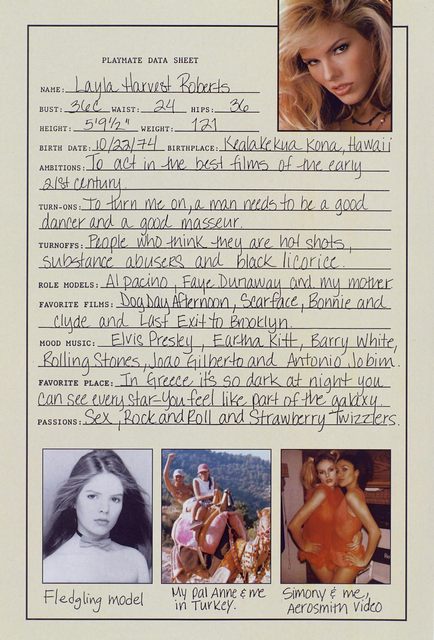 PLAYMATE DATA SHEET
NAME: Layla Harvest Roberts
BUST: 36C WAIST: 24 HIPS: 36
HEIGHT: 5'9½" WEIGHT: 121
BIRTH DATE: 10/22/74 BIRTHPLACE: Kealakekua Kona, Hawaii
AMBITIONS: To act in the best films of the early
21st century.
TURN-ONS: To turn me on, a man needs to be a good
dancer and a good masseur.
TURNOFFS: People who think they are hot shots,
substance abusers and black licorice.
ROLE MODELS: Al pacino, Faye Dunaway and my mother
FAVORITE FILMS: Dog Day Afternoon, Scarface, Bonnie and
Clyde and Last Exit to Brooklyn.
MOOD MUSIC: Elvis Presley, Eartha Kitt, Barry White,
Rolling Stones, Joao Gilberto and Antonio Jobim.
FAVORITE PLACE: In Greece it's so dark at night you
can see every star-you feel like part of the galaxy.
PASSIONS: Sex, Rock and Roll and Strawberry Twizzlers.
Fledgling model
My pal Anne & me
in Turkey.
Simony & me,
Aerosmith video